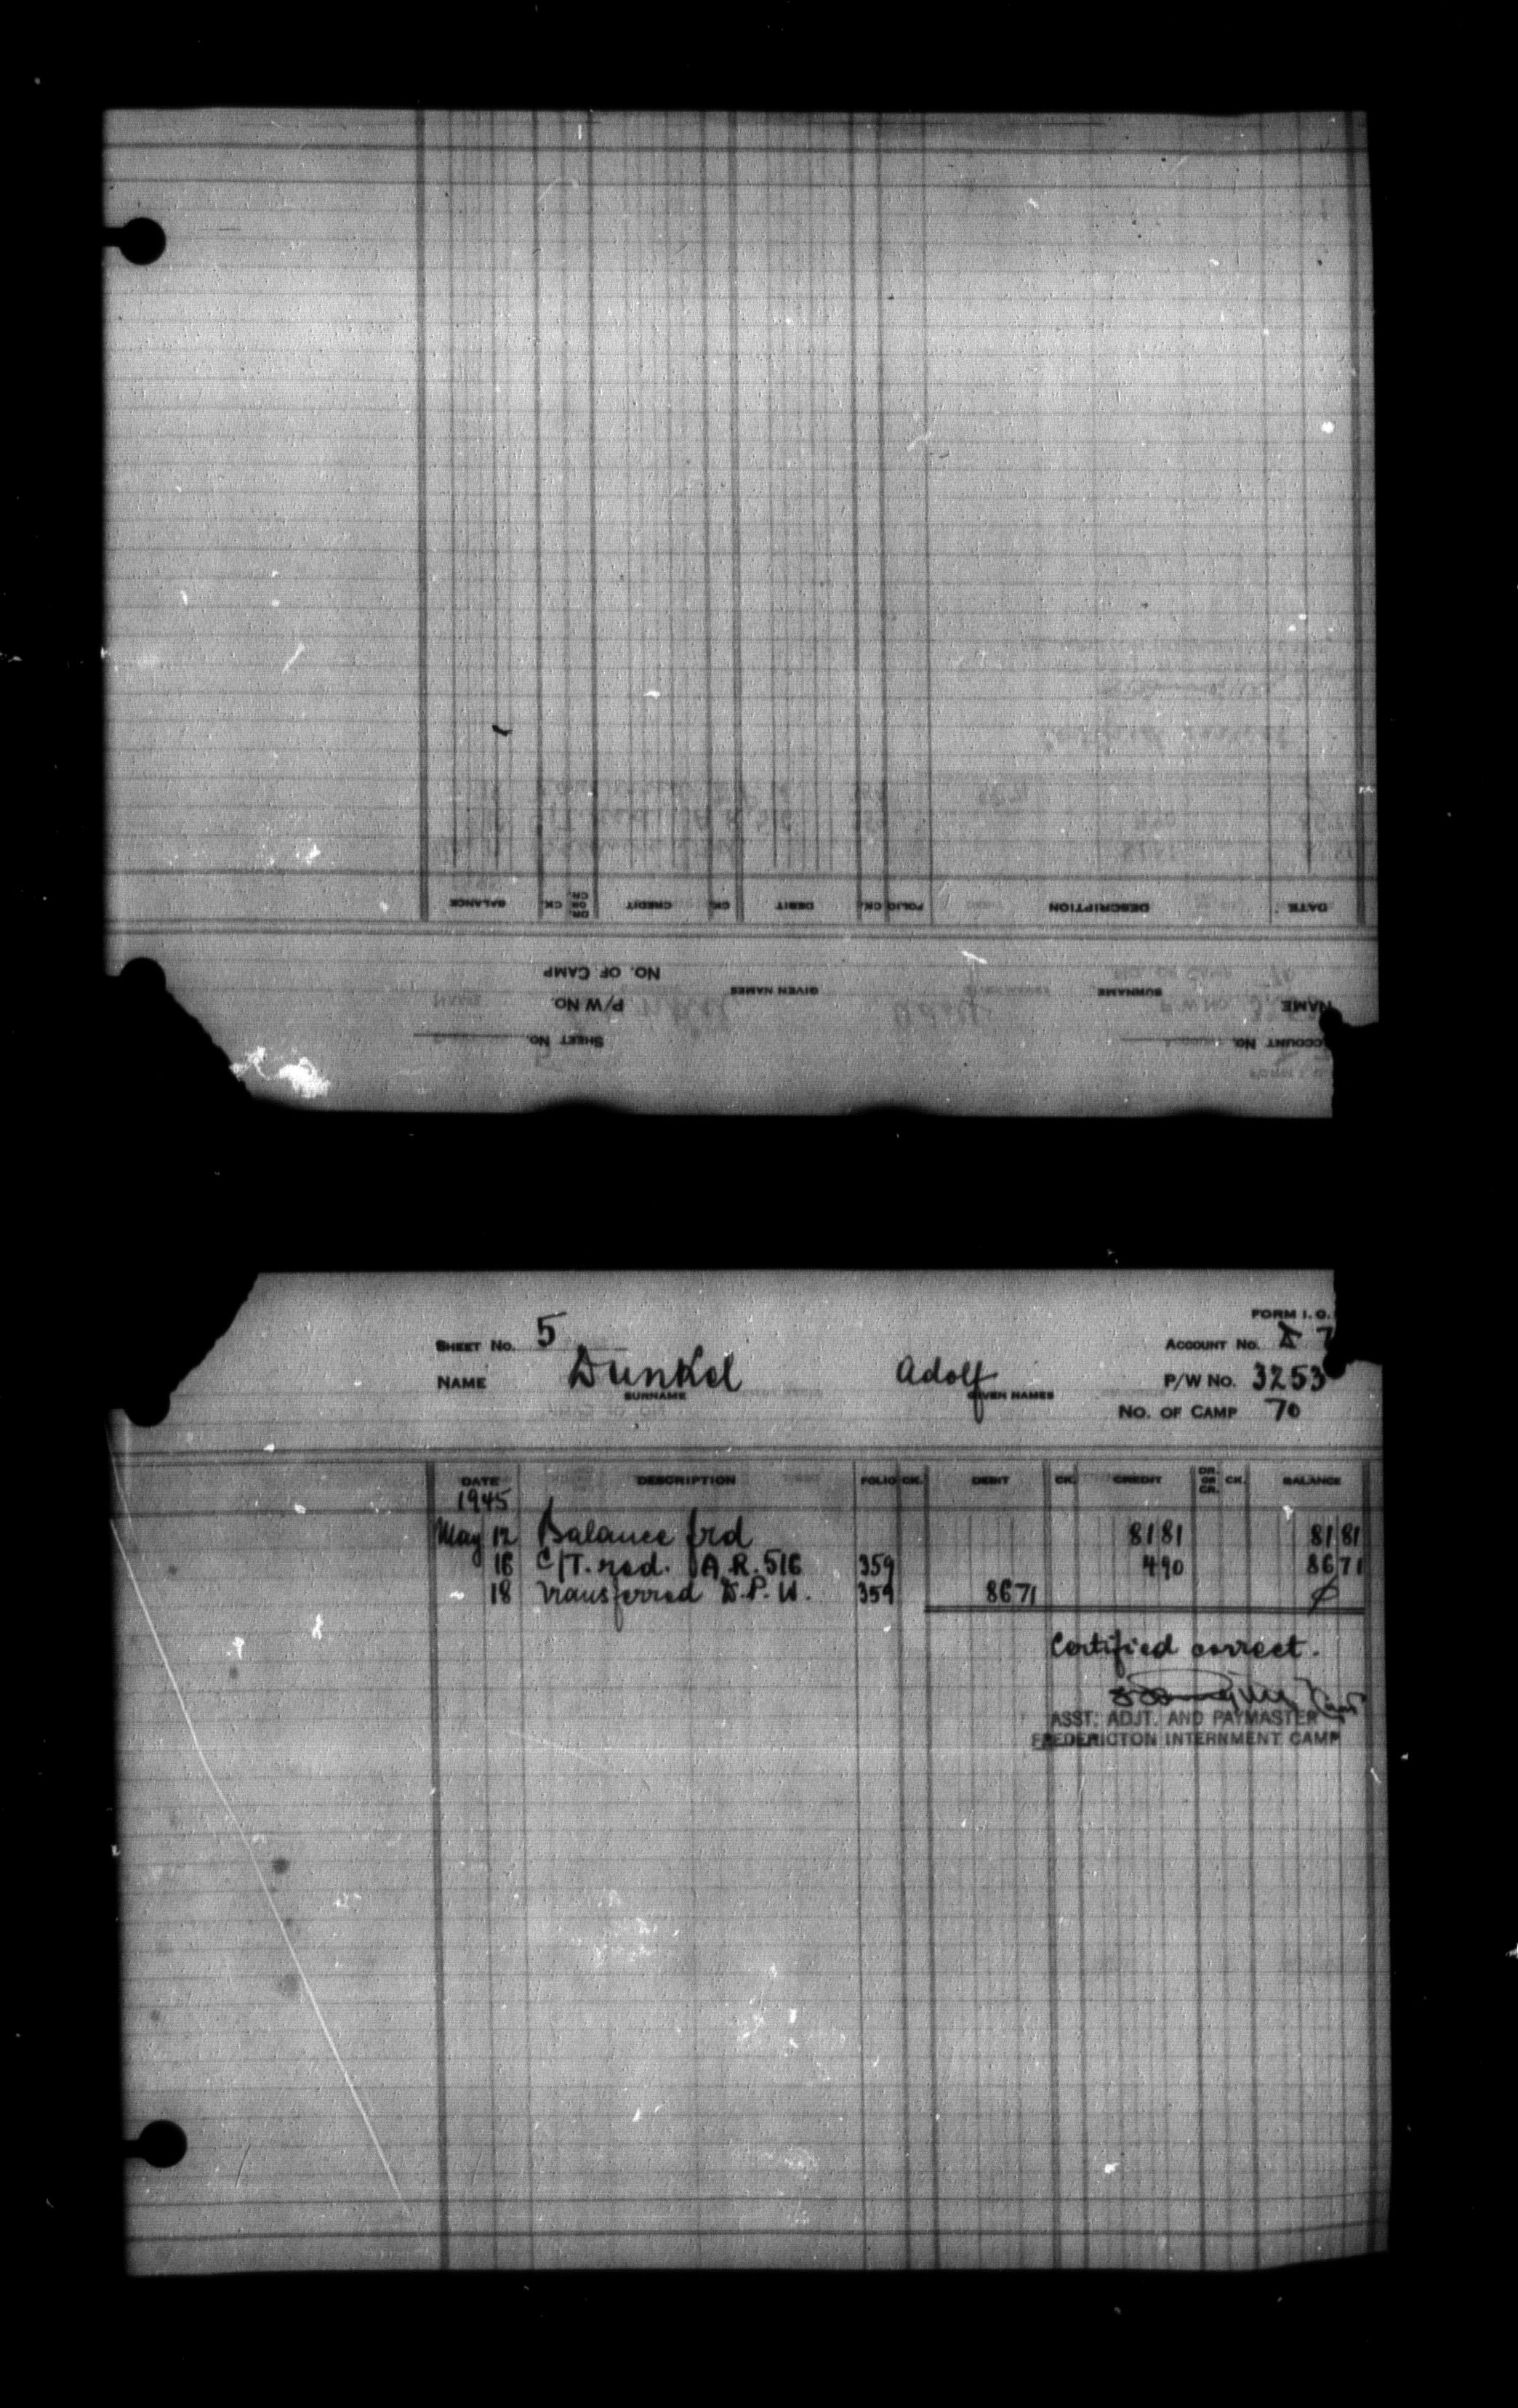 DATE DESCRIPTION FOLIO CK. DEBIT CK. CREDIT DR. OR CR. CK. BALANCE
NO. OF CAMP
SURNAME GIVEN NAMES
NAME P/W NO.
ACCOUNT NO. SHEET NO.
FORM I. O.
SHEET NO. 5 ACCOUNT NO. D 7
NAME Dunkel Adolf P/W NO. 3253
SURNAME GIVEN NAMES
NO. OF CAMP 70
DATE DESCRIPTION FOLIO CK. DEBIT CK. CREDIT DR. OR CR. CK. BALANCE
1945
May 12 Balance frd 81 81 81 81
16 C/T. red. A.R. 516 359 4 90 86 71
18 Transferred D.P.W. 359 86 71 ø
Certified correct.
ASST. ADJT. AND PAYMASTER
FREDERICTON INTERNMENT CAMP